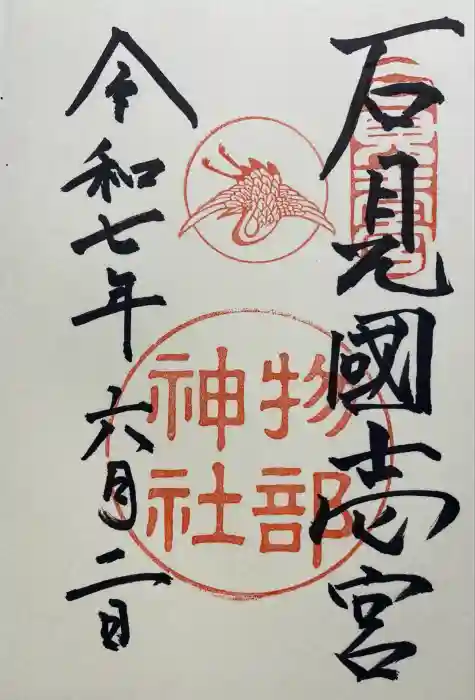 石見國壱宮
物部
神社
令和七年 六月二日